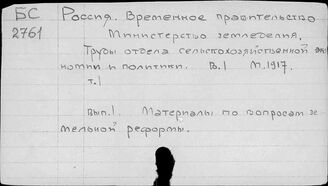 БС
2761
Россия. Временное правительство
Министерство земледелия.
Труды отдела сельскохозяйственной эко-
номии и политики. В.1 М.1917.
т.1
Вып.1. Материалы по вопросам зе-
мельной реформы.